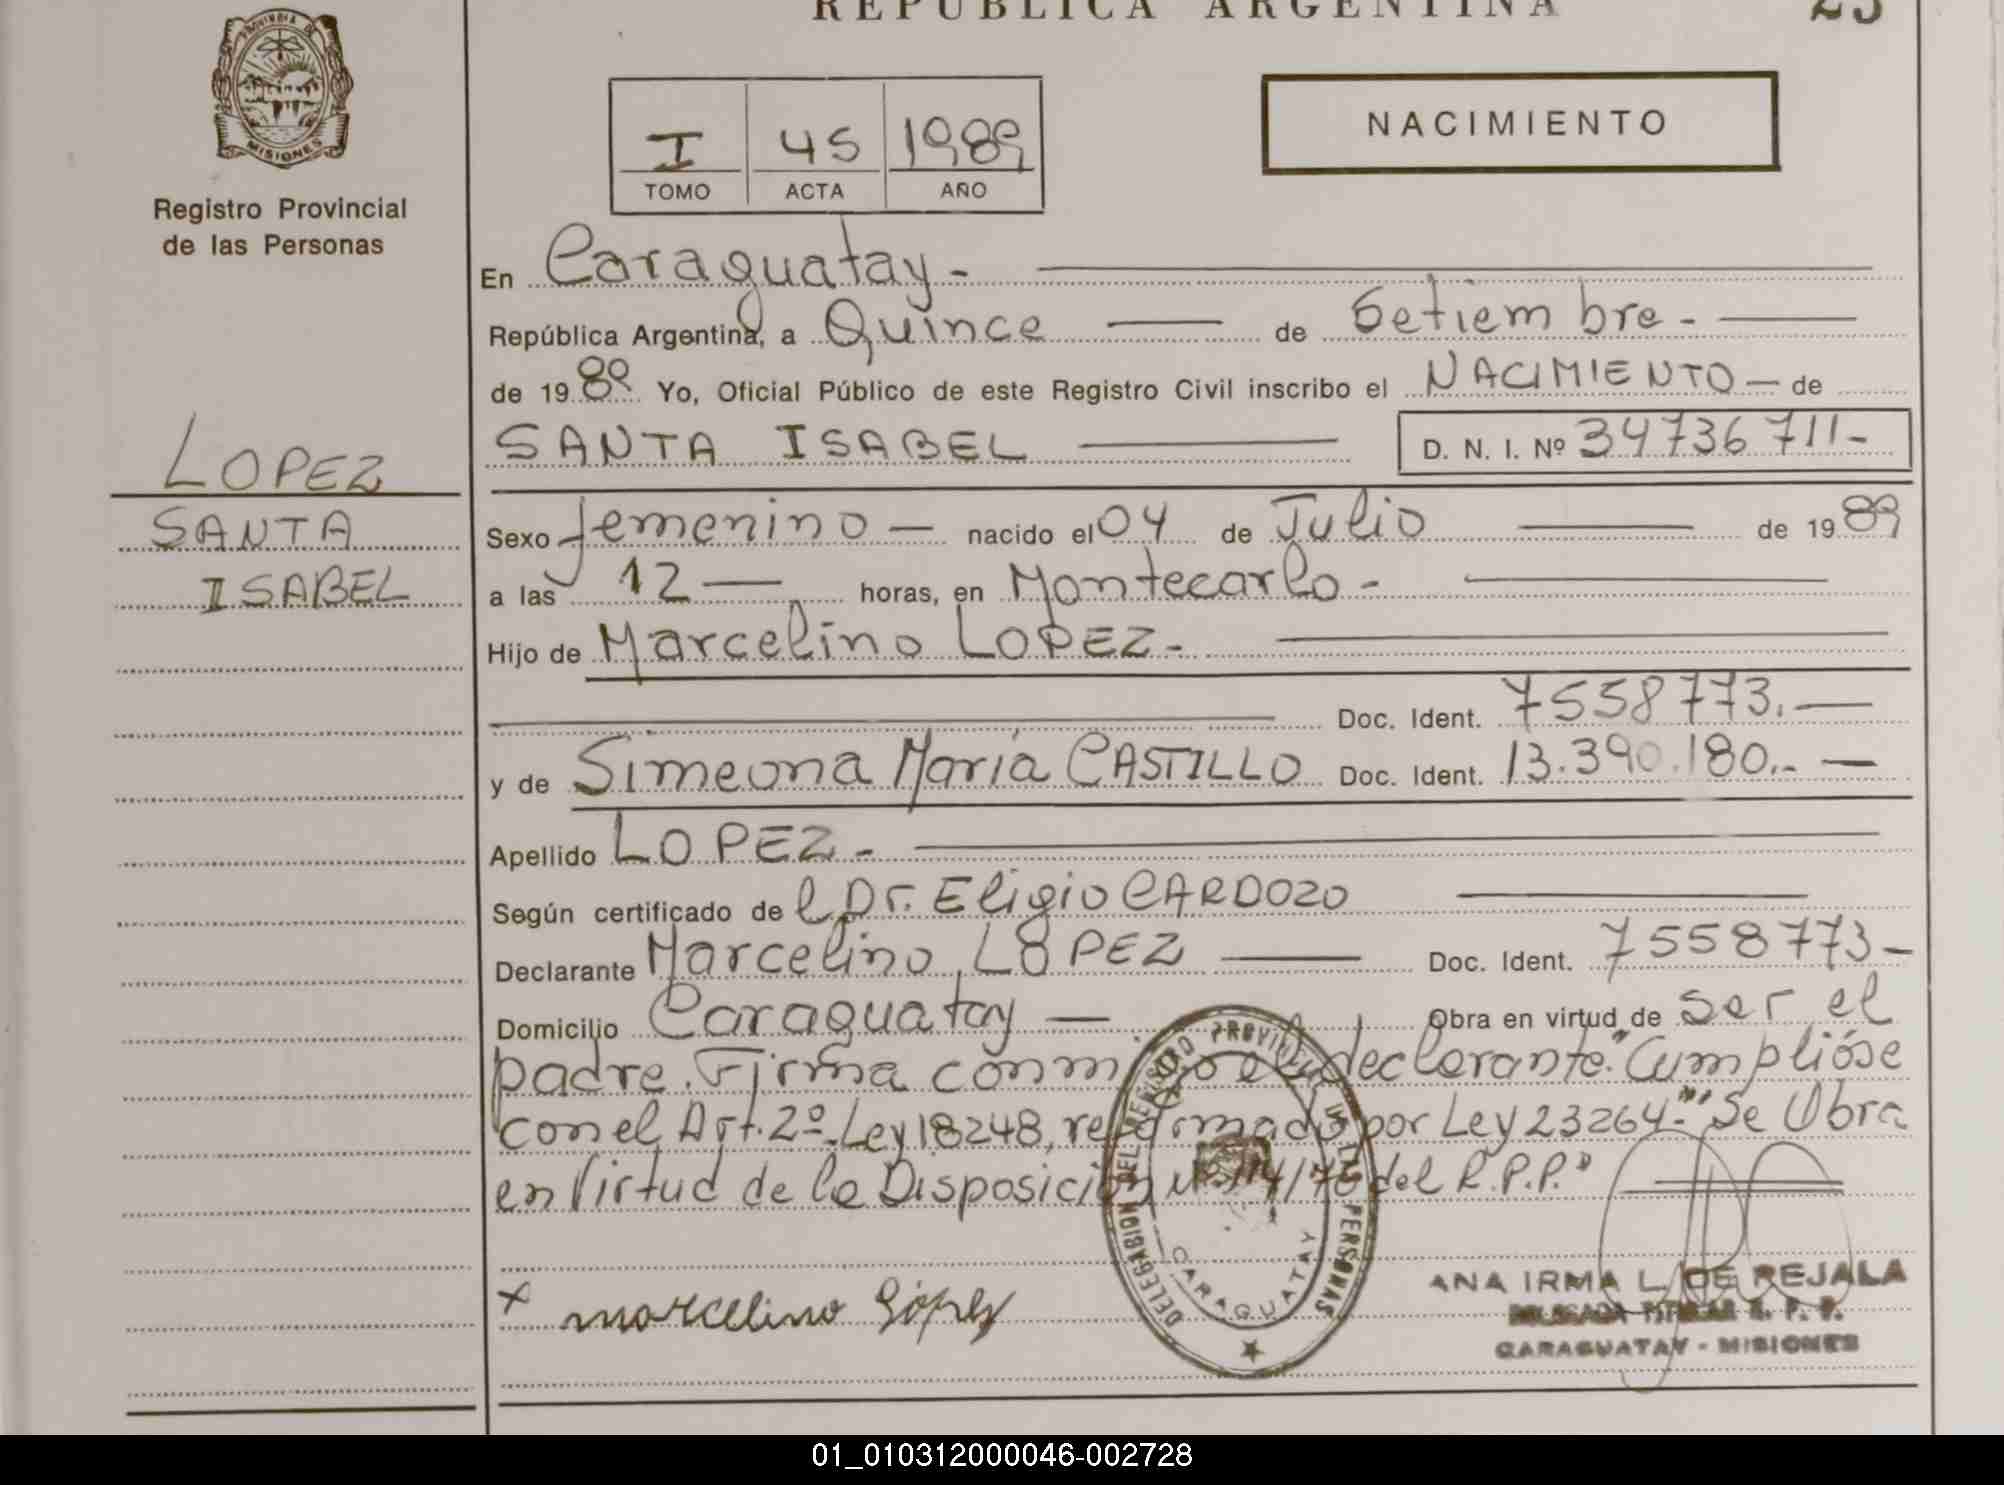 REPUBLICA ARGENTINA
23
PROVINCIA DE
MISIONES
Registro Provincial
de las Personas
I 45 1989
TOMO ACTA AÑO
NACIMIENTO
En Caraguatay -
República Argentina, a Quince de Setiembre -
de 1989 Yo, Oficial Público de este Registro Civil inscribo el NACIMIENTO - de
SANTA ISABEL D. N. I. Nº 34736711-
LOPEZ
SANTA
ISABEL
Sexo femenino - nacido el 04 de Julio de 1989
a las 12 - horas, en Montecarlo -
Hijo de Marcelino LOPEZ -
Doc. Ident. 7558773. -
y de Simeona María CASTILLO Doc. Ident. 13.390.180.- -
Apellido LOPEZ -
Según certificado de el Dr. Eligio CARDOZO
Declarante Marcelino LOPEZ Doc. Ident. 7558773 -
Domicilio Caraguatay - Obra en virtud de ser el
padre. Firma conmigo el declarante. "Cumplióse
con el Art. 2º Ley 18248, reformado por Ley 23264." "Se Obra
en Virtud de la Disposición Nº 114/76 del R.P.P."
x marcelino López
DELEGACION DEL REGISTRO PROVINCIAL DE LAS PERSONAS
CARAGUATAY
ANA IRMA L. DE REJALA
DELEGADA TITULAR R. P. P.
CARAGUATAY - MISIONES
01_010312000046-002728